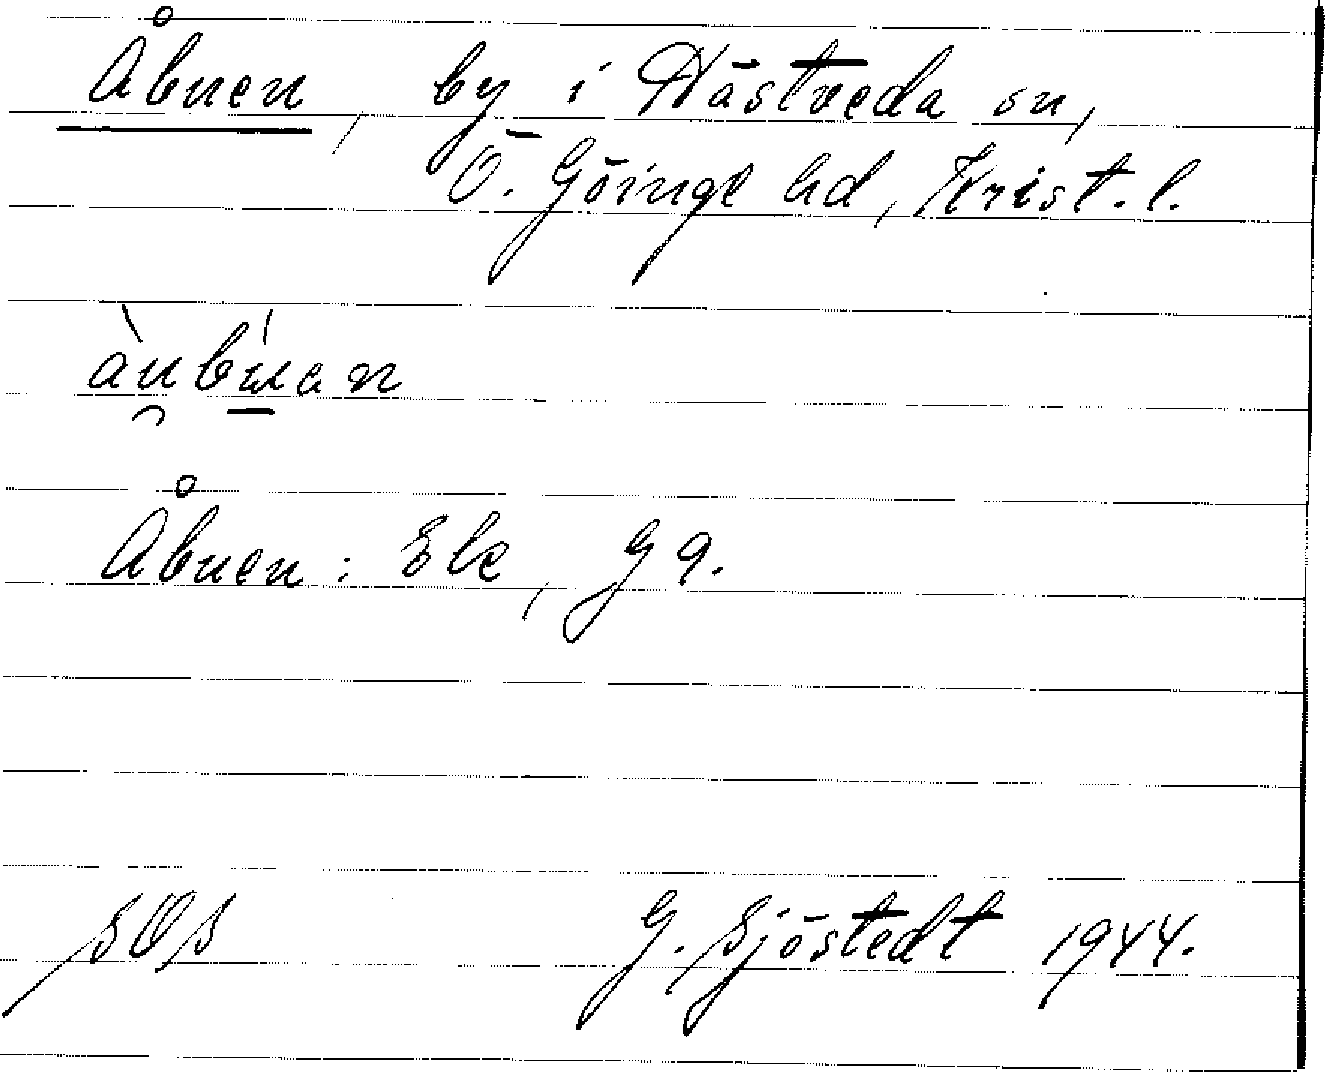 Åbnen, by i Hästveda sn,
Ö. Göinge hd, Krist. l.
Åbnen: Ek, G 9.
SOS G. Sjöstedt 1944.